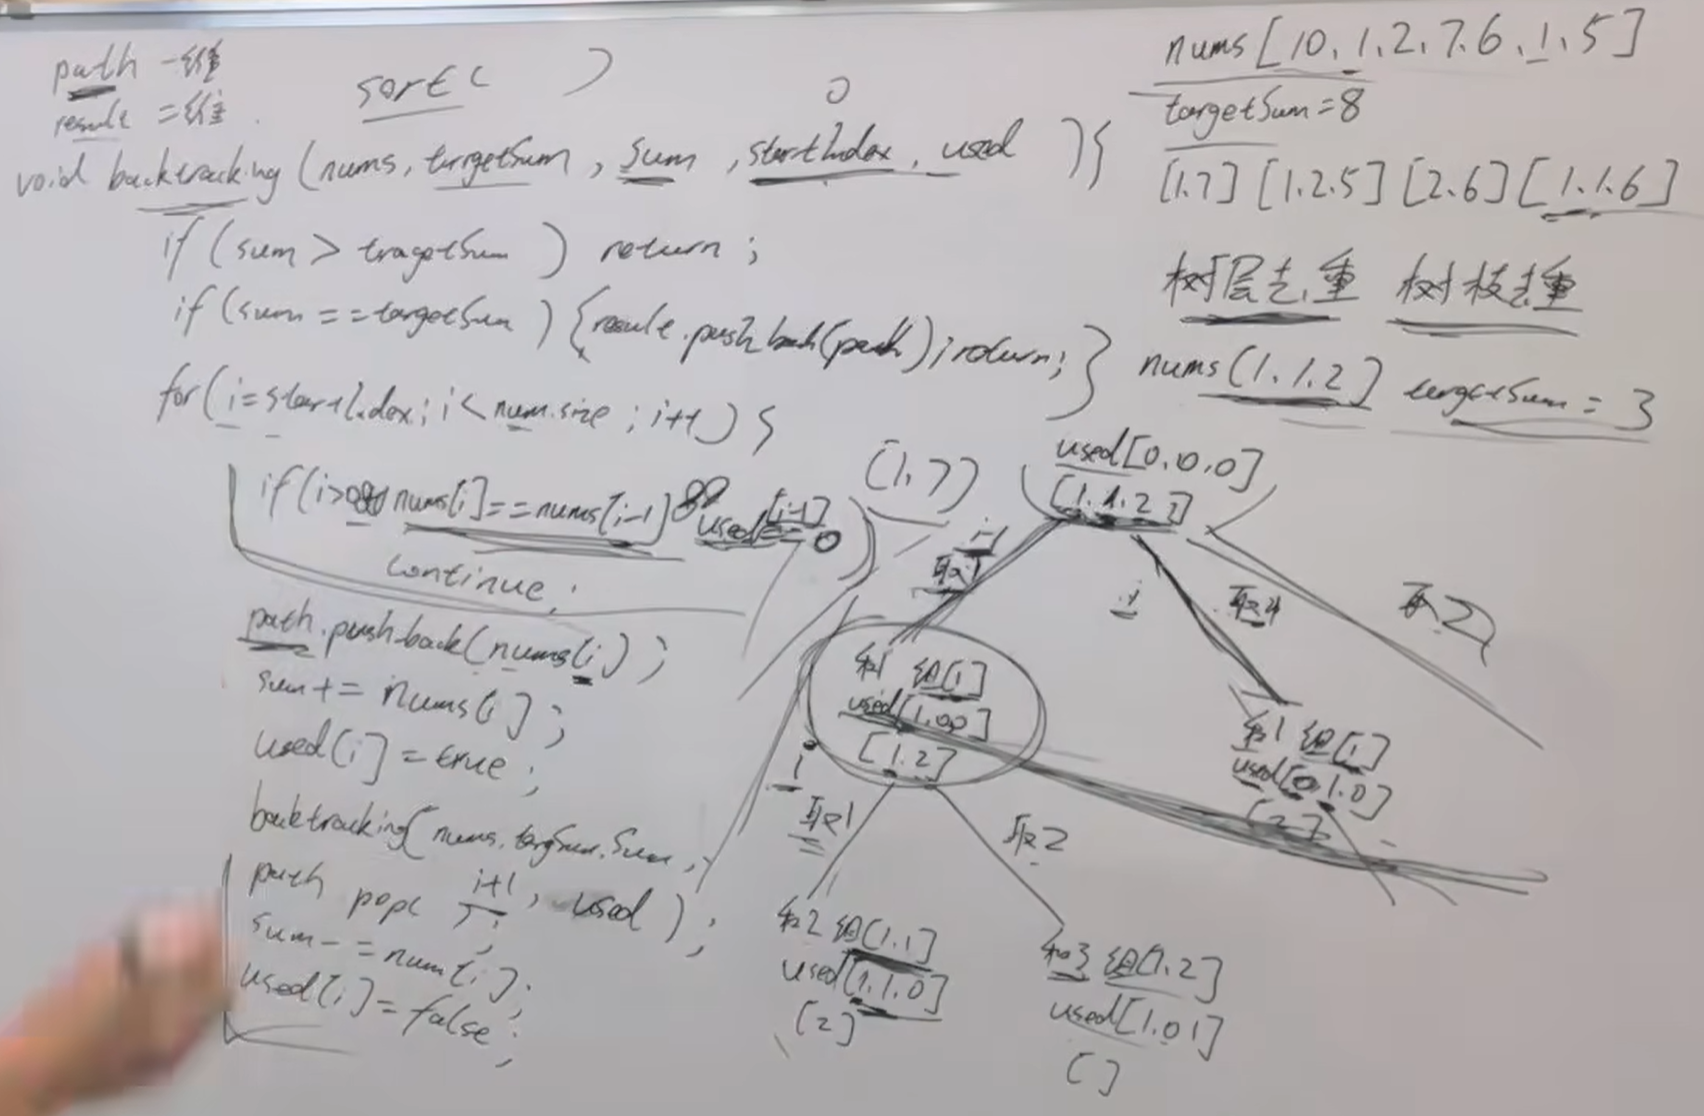 path 一维
result 二维
sort( )
0
void backtracking (nums, targetSum, sum, startIndex, used ){
if (sum > tragetSum ) return ;
if (sum == targetSum ) {result.push back(path) ; return; }
for (i = startIndex; i < num.size ; i++) {
if (i>0 && nums[i] == nums[i-1] && used[i-1] == 0 )
continue ;
path.push-back(nums[i]) ;
sum += nums[i] ;
used[i] = true ;
backtracking( nums. targSum. Sum ,
i+1 , used ) ;
path pop( ) ;
sum -= num[i] ;
used[i] = false ;
nums [10, 1, 2, 7, 6, 1, 5]
targetSum = 8
[1.7] [1.2.5] [2.6] [1.1.6]
树层去重 树枝去重
nums[1.1.2] targetSum = 3
(1,7)
used[0,0,0]
[1.1.2]
i-1
取1
i
取1
取2
和1 组[1]
used[1.00]
[1.2]
和1 组[1]
used[0.1.0]
[2]
i
取1
取2
和2 组[1.1]
used[1.1.0]
[2]
和3 组[1.2]
used[1.01]
[]